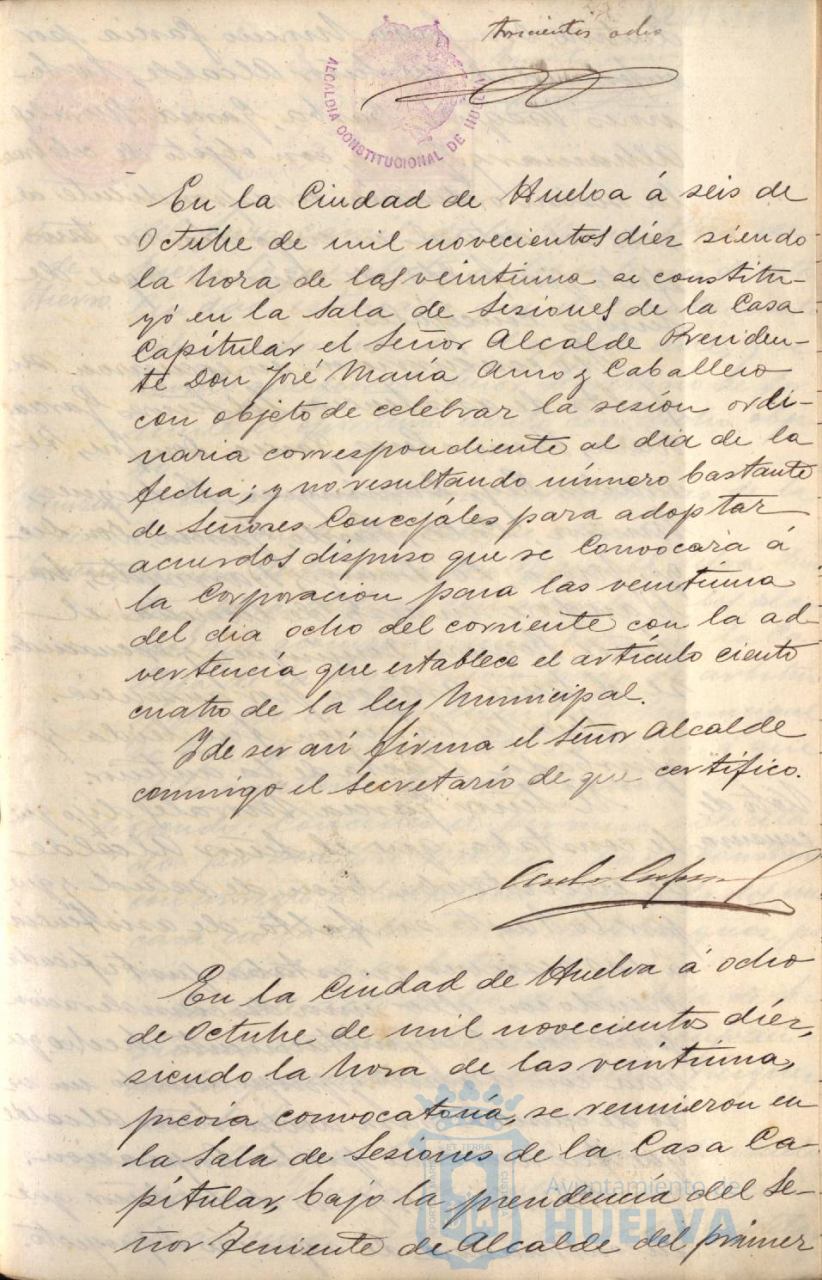 trescientos ocho
ALCALDIA CONSTITUCIONAL DE HUELVA
En la Ciudad de Huelva á seis de
Octubre de mil novecientos diéz siendo
la hora de las veintiuna se constitu-
yó en la Sala de Sesiones de la Casa
Capitular el Señor Alcalde Presiden-
te Don José María Amo y Caballero
con objeto de celebrar la sesión ordi-
naria correspondiente al dia de la
fecha; y no resultando número bastante
de Señores Concejáles para adoptar
acuerdos dispuso que se convocara á
la Corporación para las veintiuna
del dia ocho del corriente con la ad-
vertencia que establece el artículo ciento
cuatro de la ley Municipal.
Y de ser así firma el Señor Alcalde
conmigo el Secretario de que certifico.
En la Ciudad de Huelva á ocho
de Octubre de mil novecientos diéz,
siendo la hora de las veintiuna,
previa convocatoria, se reunieron en
la Sala de Sesiones de la Casa Ca-
pitular, bajo la presidencia del Se-
ñor Teniente de Alcalde del primer
Ayuntamiento de
HUELVA